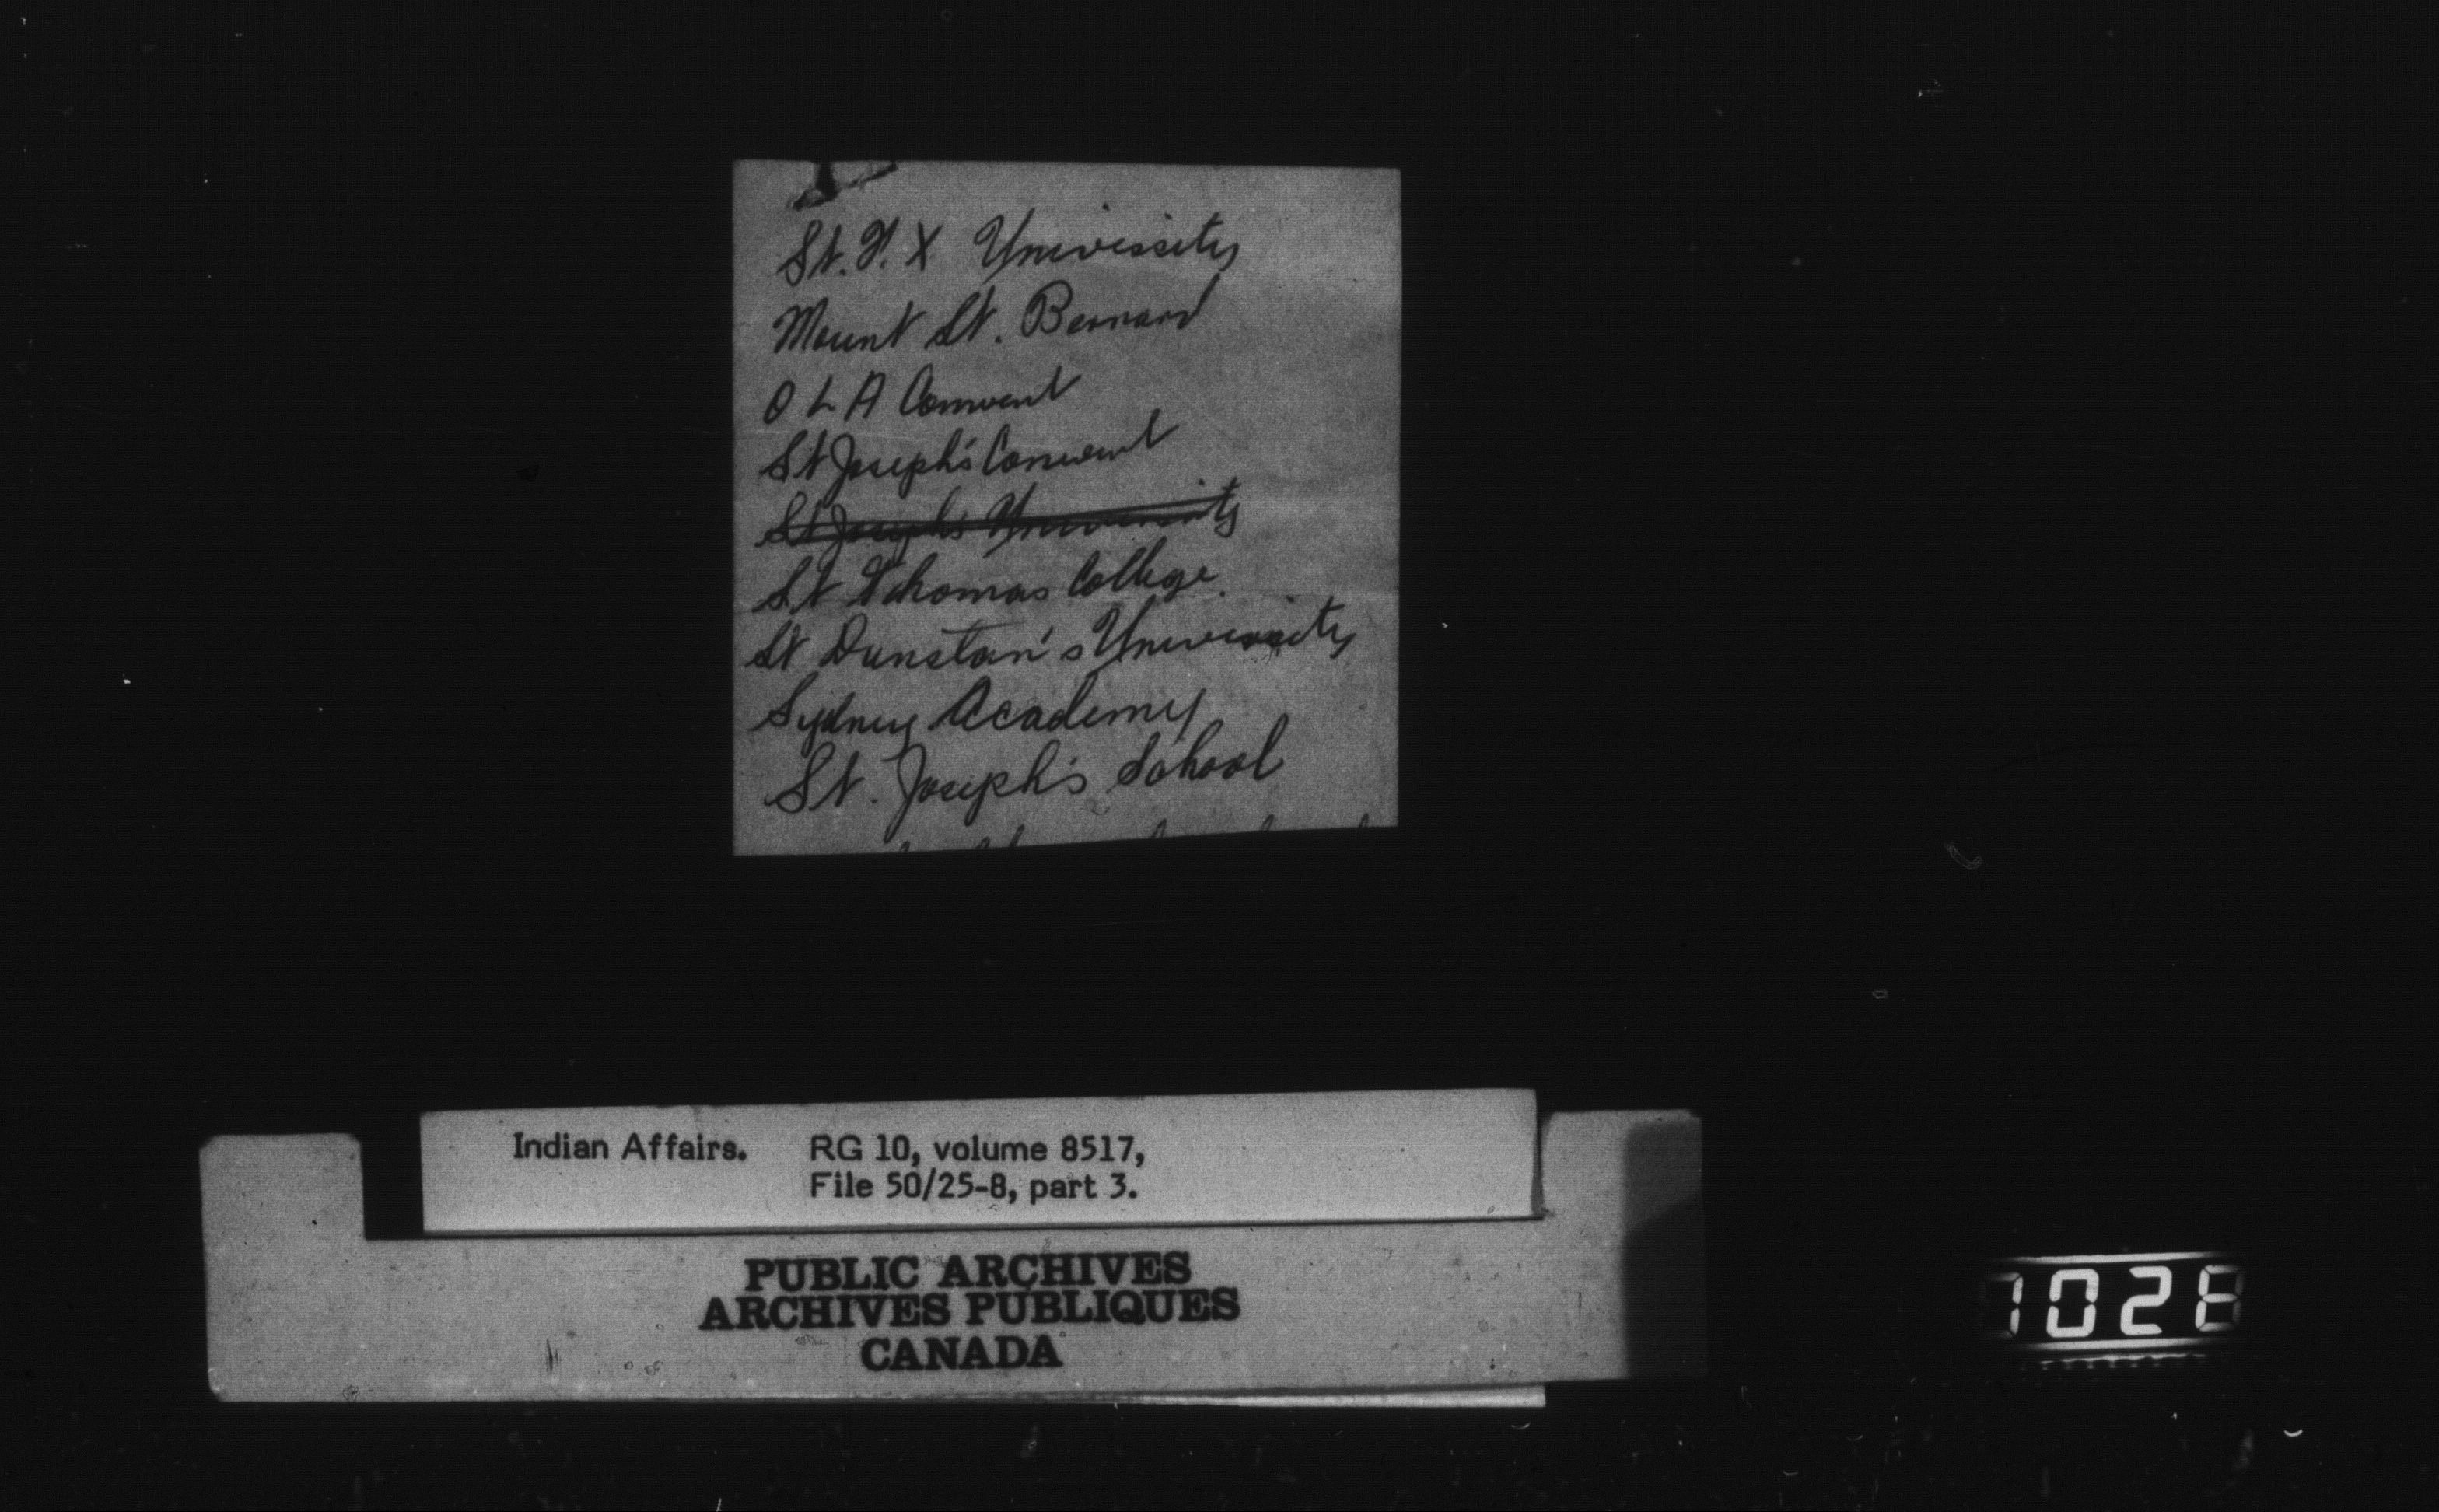 St. F. X University
Mount St. Bernard
O L A Convent
St Joseph's Convent
St Joseph's University
St Thomas College.
St Dunstan's University
Sydney Academy
St. Joseph's School
Indian Affairs. RG 10, volume 8517,
File 50/25-8, part 3.
PUBLIC ARCHIVES
ARCHIVES PUBLIQUES
CANADA
7028